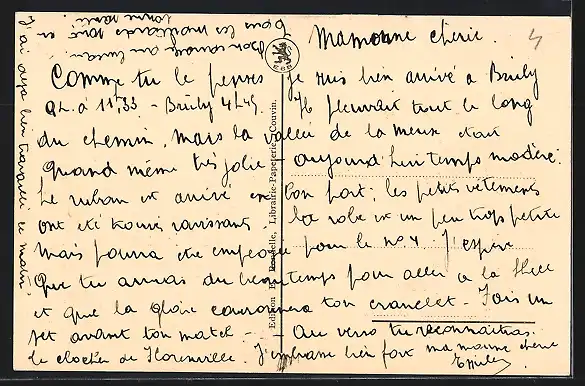 Mamoune chérie.
Comme tu le penses je suis bien arrivé à Brûly
Q.L. à 11.33 - Brûly 4h49. Il pleuvait tout le long
du chemin, mais la vallée de la Meuse était
quand même très jolie. aujourd'hui temps modéré.
Le ruban est arrivé en bon port; les petits vêtements
ont été trouvés ravissants. La robe est un peu trop petite
Mais pourra être employée pour le no 4 J'espère
que tu auras du beau temps pour aller à la
et que la gloire couronnera ton - Fais un
set avant ton match - Au verso tu reconnaîtras
le clocher de Florenville. J'embrasse bien fort ma moune chérie
Emile
J'ai déjà bien travaillé ce matin.
Bon courage au
Tous les
bonne
Edition Librairie-Papeterie, Couvin.